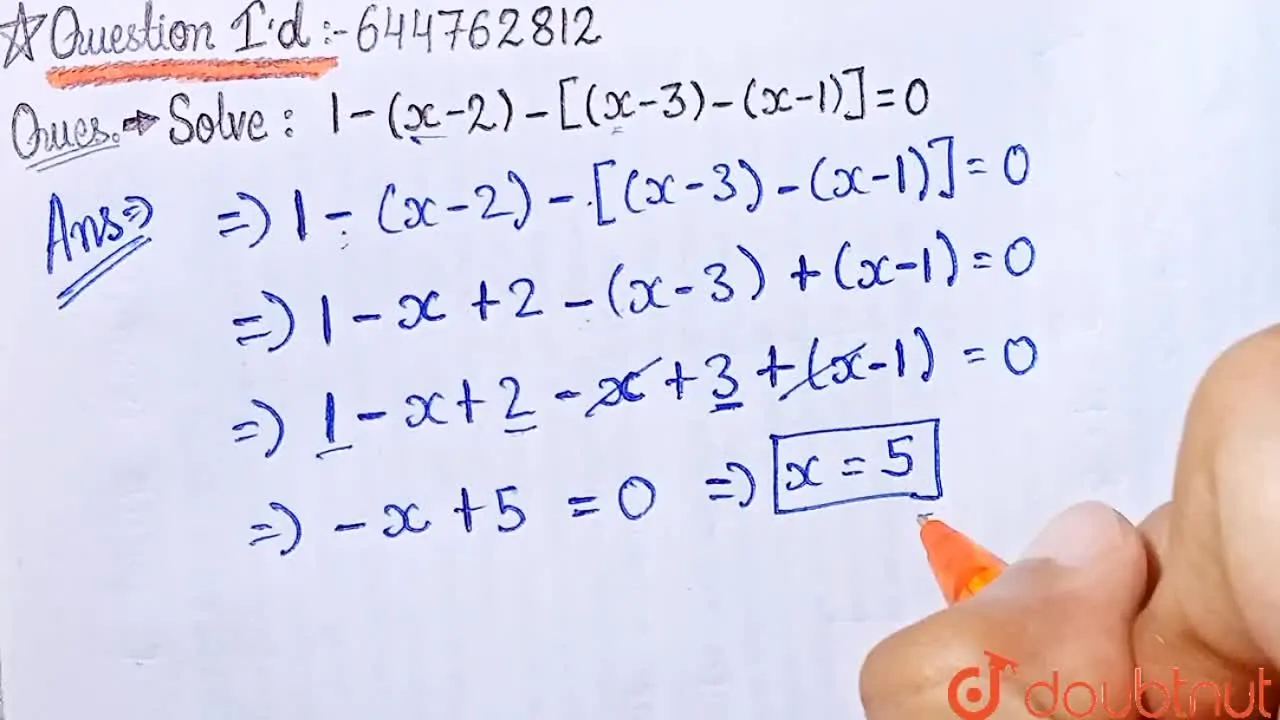 ☆ Question I'd :- 644762812
Ques. → Solve : 1-(x-2)-[(x-3)-(x-1)]=0
Ans⇒ ⇒) 1-(x-2)-[(x-3)-(x-1)]=0
⇒) 1-x+2-(x-3)+(x-1)=0
⇒) 1-x+2-x+3+(x-1)=0
⇒) -x+5=0 ⇒) x=5
doubtnut